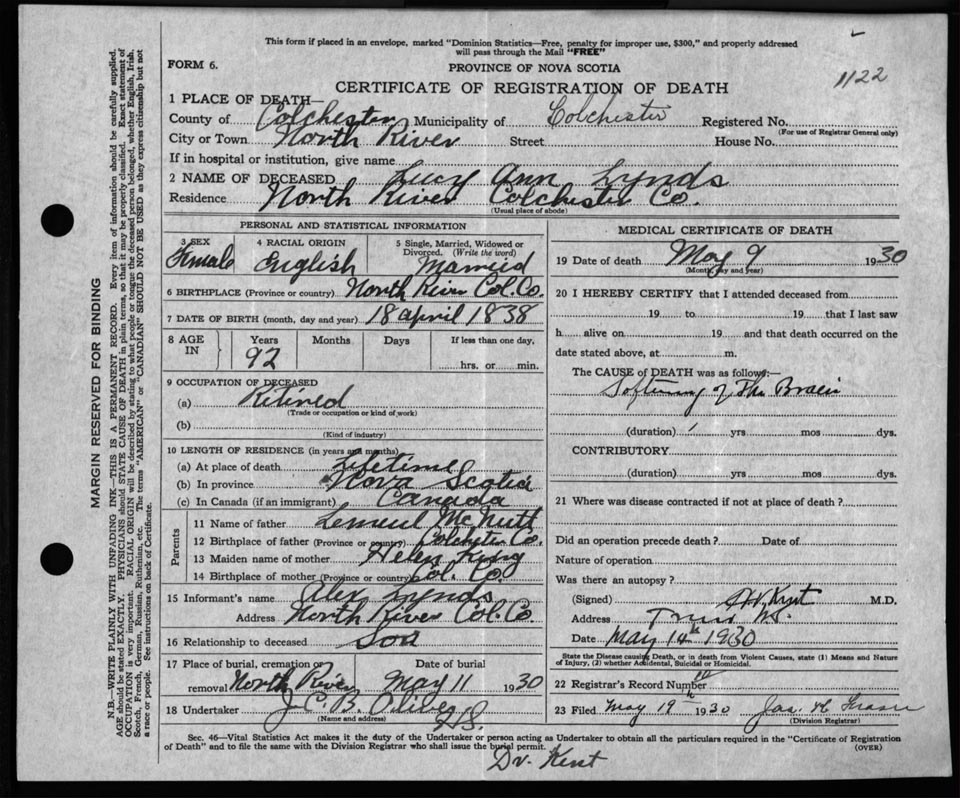 This form if placed in an envelope, marked "Dominion Statistics—Free, penalty for improper use, $300," and properly addressed
will pass through the Mail "FREE"
FORM 6.
PROVINCE OF NOVA SCOTIA
1122
CERTIFICATE OF REGISTRATION OF DEATH
1 PLACE OF DEATH—
County of Colchester Municipality of Colchester Registered No.
(For use of Registrar General only)
City or Town North River Street House No.
If in hospital or institution, give name
2 NAME OF DECEASED Lucy Ann Lynds
Residence North River Colchester Co.
(Usual place of abode)
PERSONAL AND STATISTICAL INFORMATION
3 SEX Female 4 RACIAL ORIGIN English 5 Single, Married, Widowed or Divorced. (Write the word) Married
6 BIRTHPLACE (Province or country) North River Col. Co.
7 DATE OF BIRTH (month, day and year) 18 April 1838
8 AGE IN Years 92 Months Days If less than one day, hrs. or min.
9 OCCUPATION OF DECEASED
(a) Retired
(Trade or occupation or kind of work)
(b)
(Kind of industry)
10 LENGTH OF RESIDENCE (in years and months)
(a) At place of death Lifetime
(b) In province Nova Scotia
(c) In Canada (if an immigrant) Canada
Parents
11 Name of father Lemuel McNutt
12 Birthplace of father (Province or country) Colchester Co.
13 Maiden name of mother Helen
14 Birthplace of mother (Province or country) Col. Co.
15 Informant's name Alex Lynds
Address North River Col. Co.
16 Relationship to deceased Son
17 Place of burial, cremation or removal North River Date of burial May 11 1930
18 Undertaker J. C. B. Olive
(Name and address)
MEDICAL CERTIFICATE OF DEATH
19 Date of death May 9 1930
(Month, day and year)
20 I HEREBY CERTIFY that I attended deceased from
19 to 19 that I last saw
h alive on 19 and that death occurred on the
date stated above, at m.
The CAUSE of DEATH was as follows:—
Softening of The Brain
(duration) yrs mos dys.
CONTRIBUTORY
(duration) yrs mos dys.
21 Where was disease contracted if not at place of death?
Did an operation precede death? Date of
Nature of operation
Was there an autopsy?
(Signed) Kent M.D.
Address Truro
Date May 14th 1930
State the Disease causing Death, or in death from Violent Causes, state (1) Means and Nature
of Injury, (2) whether Accidental, Suicidal or Homicidal.
22 Registrar's Record Number
23 Filed May 19th 1930 Jas.
(Division Registrar)
Sec. 46—Vital Statistics Act makes it the duty of the Undertaker or person acting as Undertaker to obtain all the particulars required in the "Certificate of Registration
of Death" and to file the same with the Division Registrar who shall issue the burial permit.
(OVER)
Dr. Kent
MARGIN RESERVED FOR BINDING
N.B.—WRITE PLAINLY WITH UNFADING INK—THIS IS A PERMANENT RECORD. Every item of information should be carefully supplied.
AGE should be stated EXACTLY. PHYSICIANS should STATE CAUSE OF DEATH in plain terms, so that it may be properly classified. Exact statement of
OCCUPATION is very important. RACIAL ORIGIN will be described by stating to what people or tongue the deceased person belonged, whether English, Irish,
Scotch, French, German, Russian, Ruthenian, etc. The terms "AMERICAN" or "CANADIAN" SHOULD NOT BE USED as they express citizenship but not
a race or people. See instructions on back of Certificate.